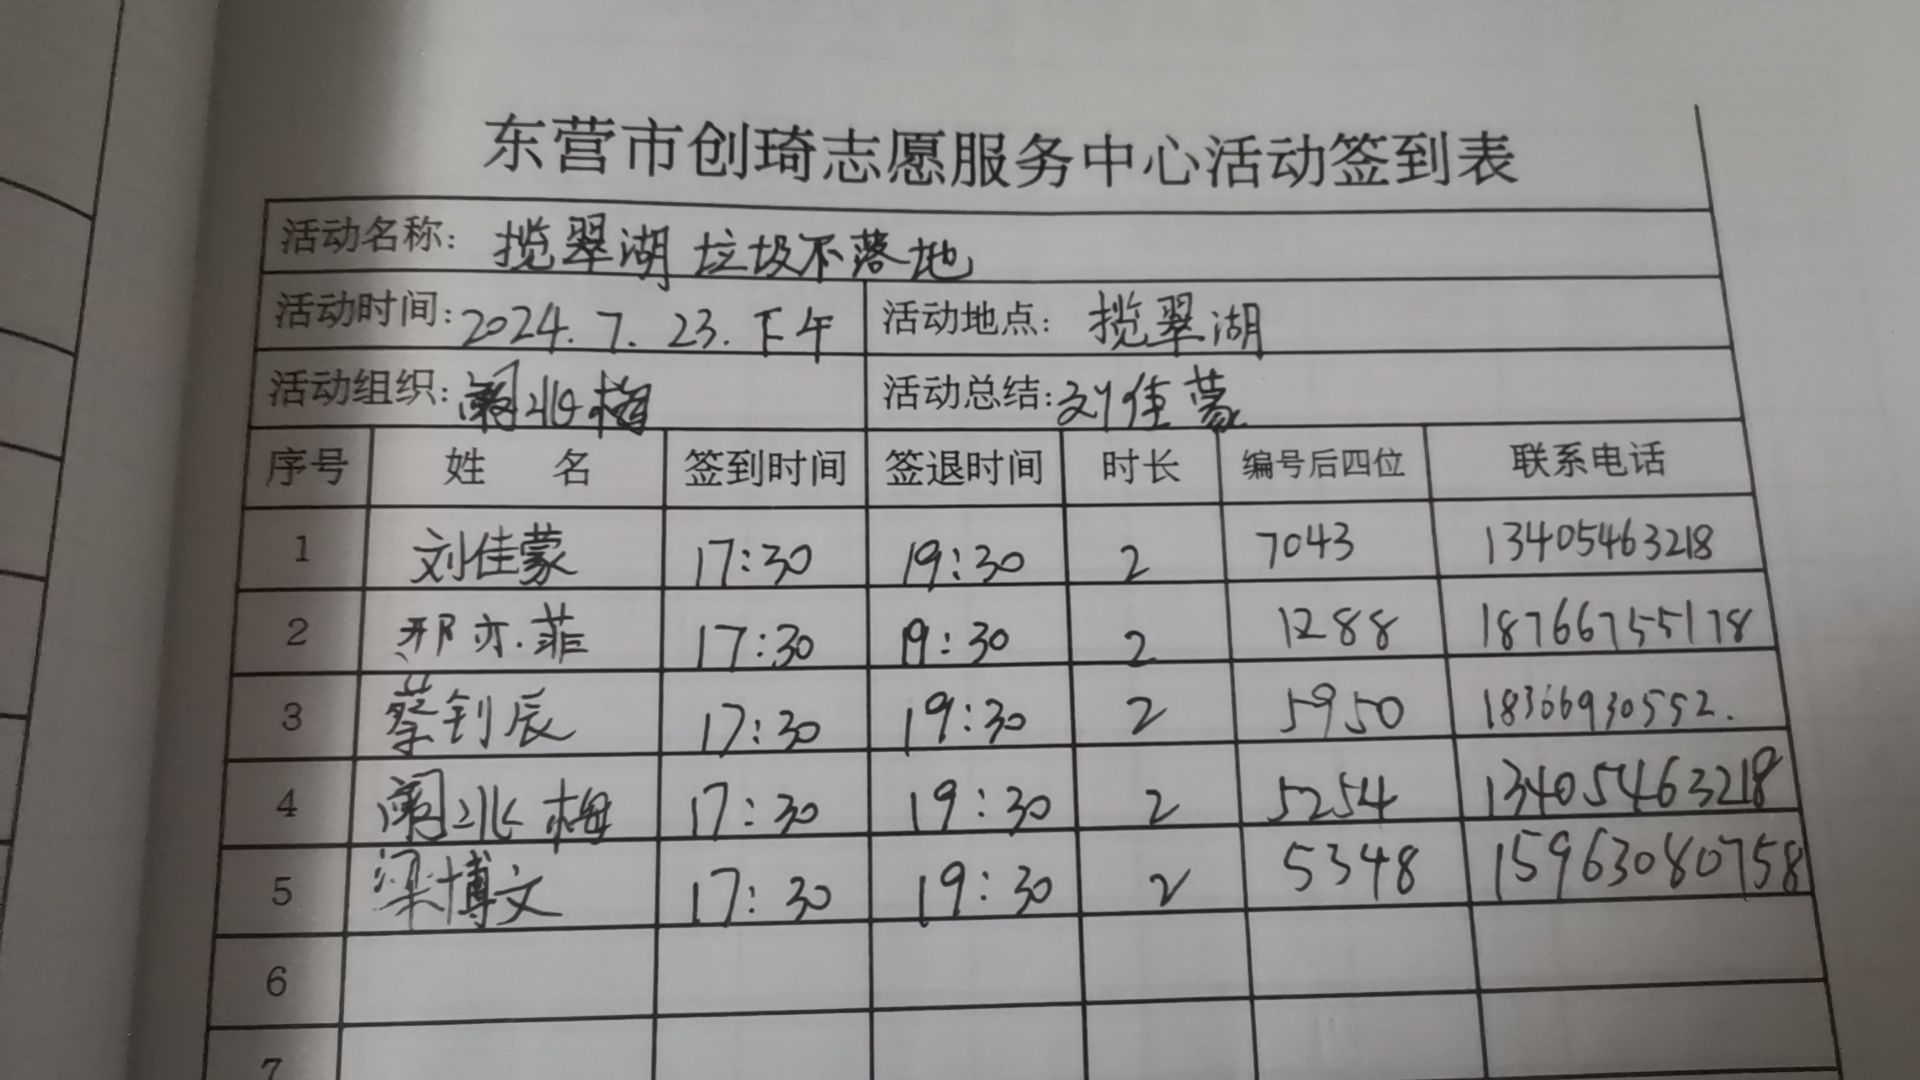 东营市创琦志愿服务中心活动签到表
活动名称: 揽翠湖垃圾不落地
活动时间: 2024.7.23.下午 活动地点: 揽翠湖
活动组织: 阚兆梅 活动总结: 刘佳蒙
序号 姓 名 签到时间 签退时间 时长 编号后四位 联系电话
1 刘佳蒙 17:30 19:30 2 7043 13405463218
2 邢亦菲 17:30 19:30 2 1288 18766755178
3 蔡钊辰 17:30 19:30 2 5950 18366930552.
4 阚兆梅 17:30 19:30 2 5254 13405463218
5 梁博文 17:30 19:30 2 5348 15963080758
6
7